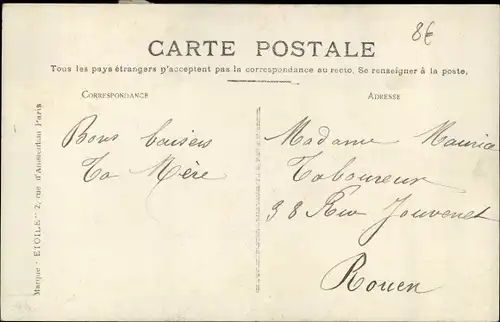 8€
CARTE POSTALE
Tous les pays étrangers n'acceptent pas la correspondance au recto. Se renseigner à la poste.
CORRESPONDANCE
ADRESSE
Bons baisers
Ta Mère
Madame Maurice
Taboureur
38 Rue Jouvenet
Rouen
Marque "ETOILE" 2, rue d'Amsterdam Paris